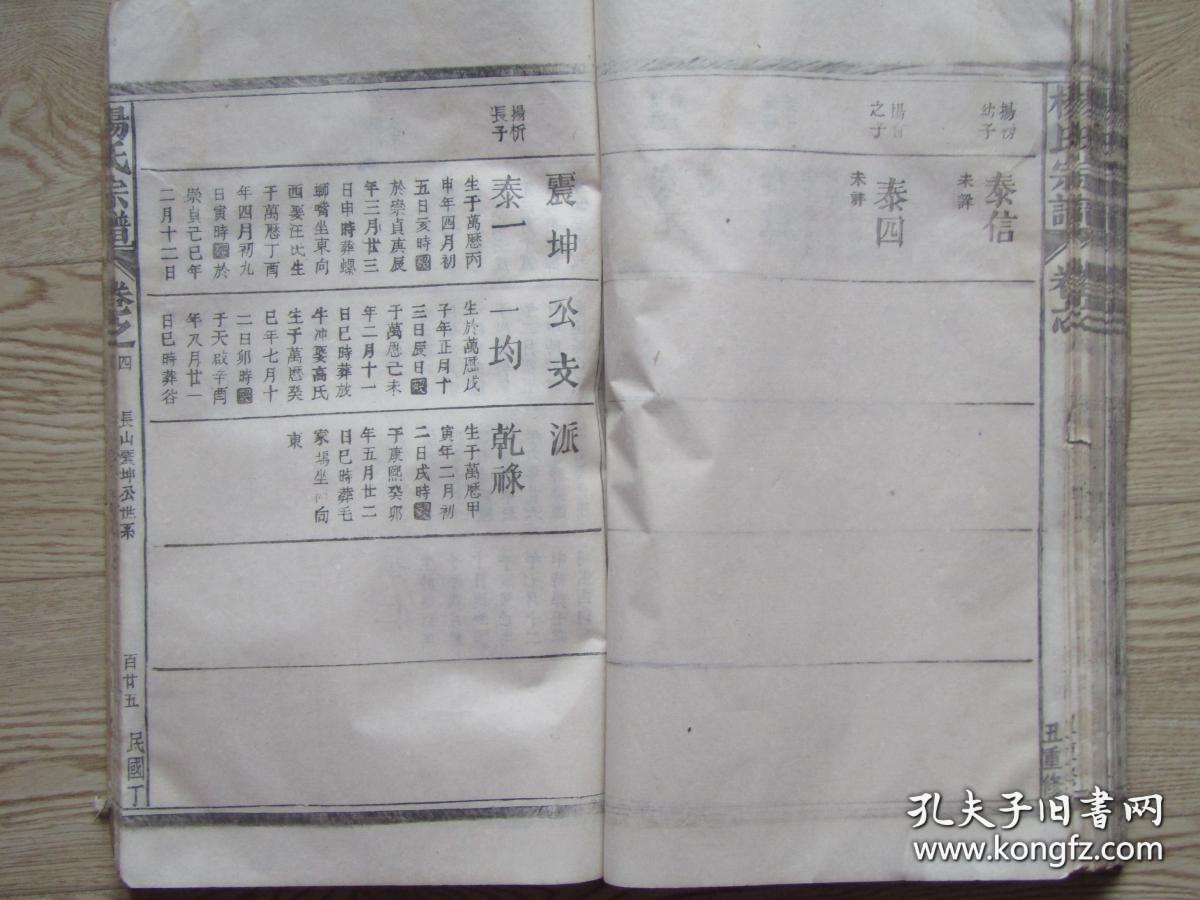 楊氏宗譜
丑重修
幼子
泰信
未詳
之子
泰四
未詳
震坤公支派
楊忻
長子
泰一
生于萬曆丙
申年四月初
五日亥時歿
於崇貞庚辰
年三月廿三
日申時葬螺
螄嘴坐東向
西娶汪氏生
于萬曆丁酉
年四月初九
日寅時歿於
崇貞己巳年
二月十二日
一均
生於萬曆戊
子年正月十
三日辰日歿
于萬曆己未
年二月十一
日巳時葬放
牛冲娶高氏
生于萬曆癸
巳年七月十
二日卯時歿
于天啟辛酉
年八月廿一
日巳時葬谷
乾祿
生于萬曆甲
寅年二月初
二日戌時歿
于康熙癸卯
年五月廿二
日巳時葬毛
家場坐向
東
楊氏宗譜
卷之一
四
長山震坤公世系
百廿五
民國丁
孔夫子旧书网
www.kongfz.com